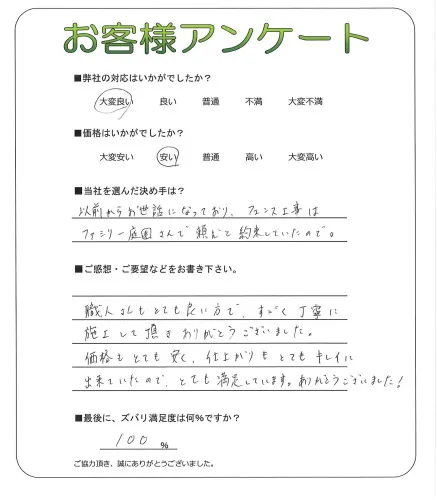 お客様アンケート
■弊社の対応はいかがでしたか?
大変良い 良い 普通 不満 大変不満
■価格はいかがでしたか?
大変安い 安い 普通 高い 大変高い
■当社を選んだ決め手は?
以前からお世話になっており、フェンス工事は
ファミリー庭園さんで頼むと約束していたので。
■ご感想・ご要望などをお書き下さい。
職人さんもとても良い方で、すごく丁寧に
施工して頂きありがとうございました。
価格もとても安く、仕上がりもとてもキレイに
出来ていたので、とても満足しています。ありがとうございました!
■最後に、ズバリ満足度は何%ですか?
100 %
ご協力頂き、誠にありがとうございました。